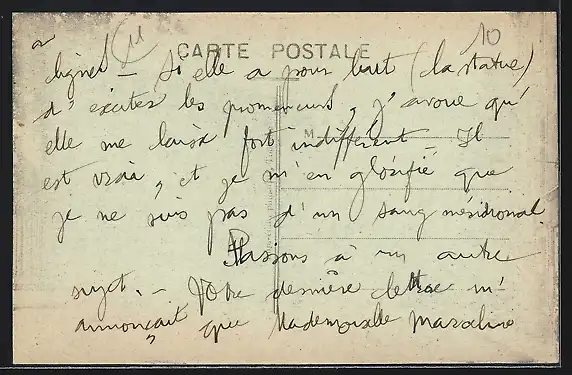 10
CARTE POSTALE
lignes — Si elle a pour but (la statue)
d'exciter les promeneurs, j'avoue qu'
elle me laisse fort indifférent — Il
M
est vrai, et je m'en glorifie que
je ne suis pas d'un sang méridional.
Passons à un autre
sujet. — Votre dernière lettre m'
annonçait que Mademoiselle